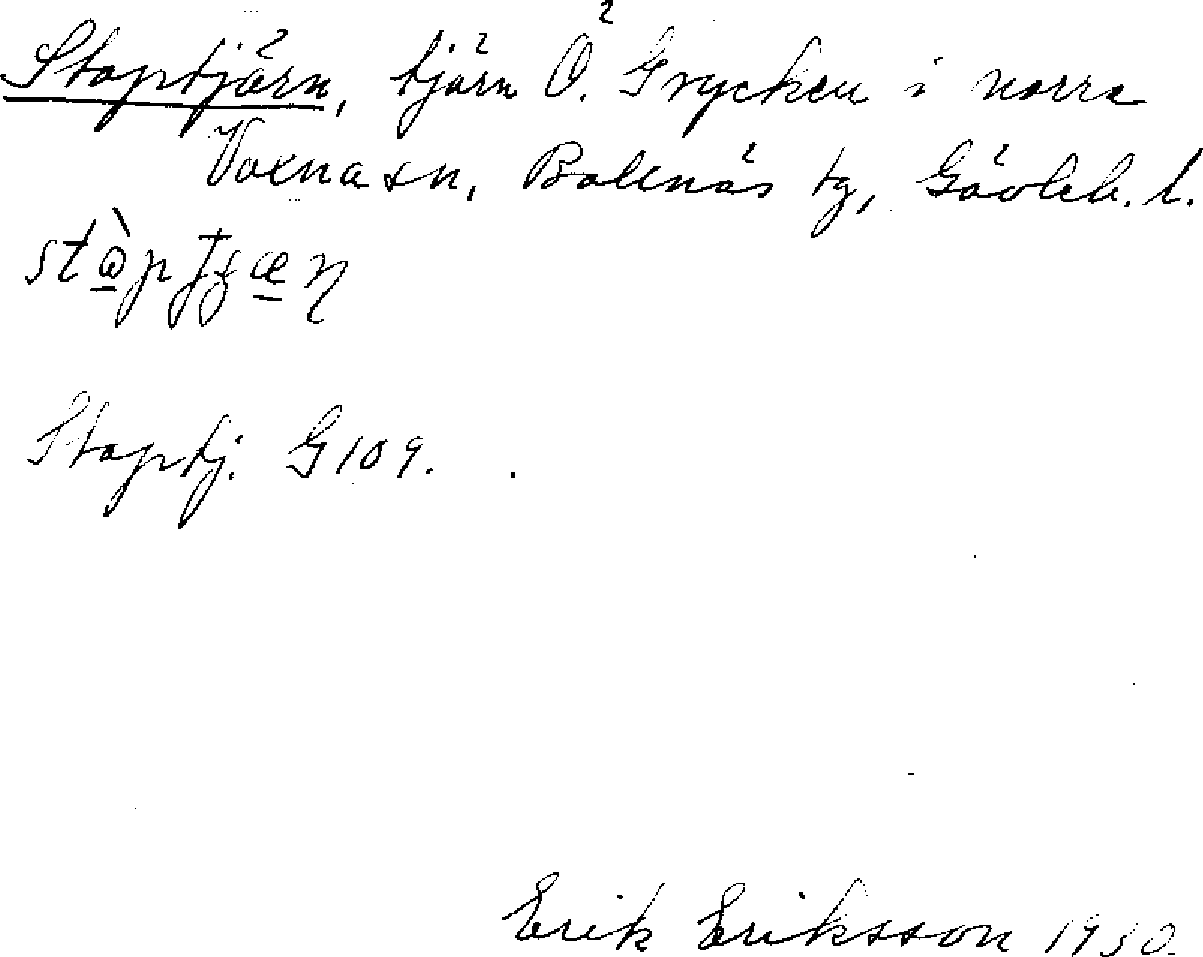 Stoptjärn, tjärn Ö. Grycken i norra
Voxna sn, Bollnäs tg, Gävleb. l.
Stoptj. G 109.
Erik Eriksson 1930.